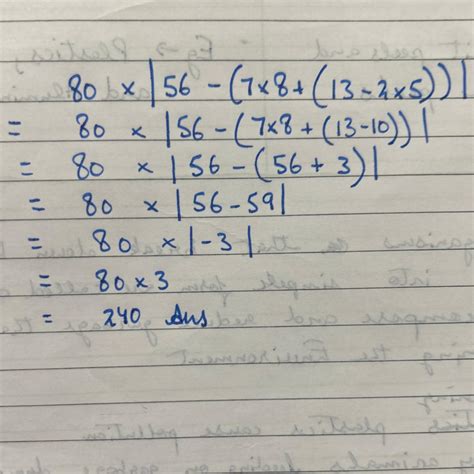 80 × |56 - (7×8 + (13 - 2×5))|
= 80 × |56 - (7×8 + (13-10))|
= 80 × |56 - (56 + 3)|
= 80 × |56 - 59|
= 80 × |-3|
= 80 × 3
= 240 Ans